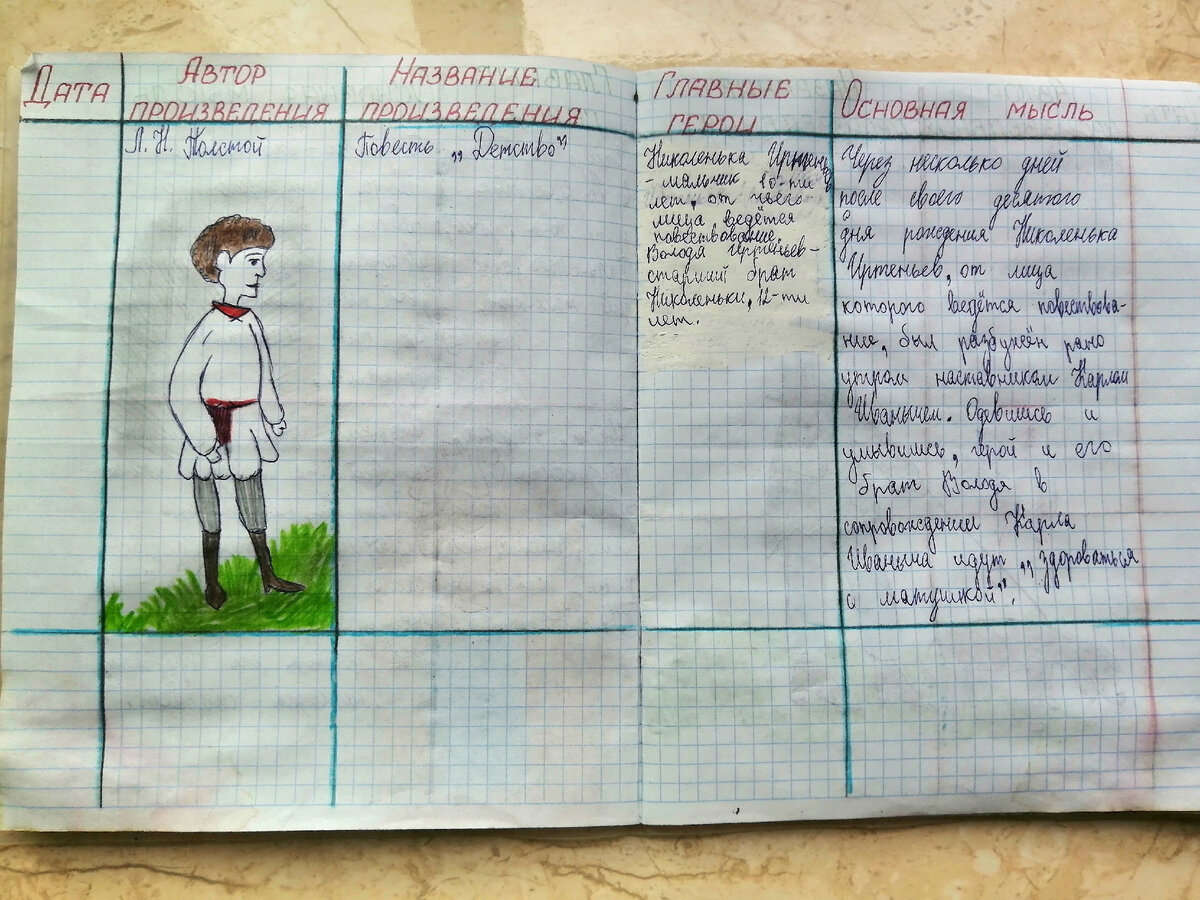 Дата
Автор
произведения
Название
произведения
Главные
герои
Основная мысль
Л. Н. Толстой
Повесть „Детство"
Николенька Иртеньев
- мальчик 10-ти
лет, от чьего
лица ведётся
повествование.
Володя Иртеньев -
старший брат
Николеньки, 12-ти
лет.
Через несколько дней
после своего десятого
дня рождения Николенька
Иртеньев, от лица
которого ведётся повествова-
ние, был разбужен рано
утром наставником Карлом
Иванычем. Одевшись и
умывшись, герой и его
брат Володя в
сопровождении Карла
Иваныча идут „здороваться
с матушкой".